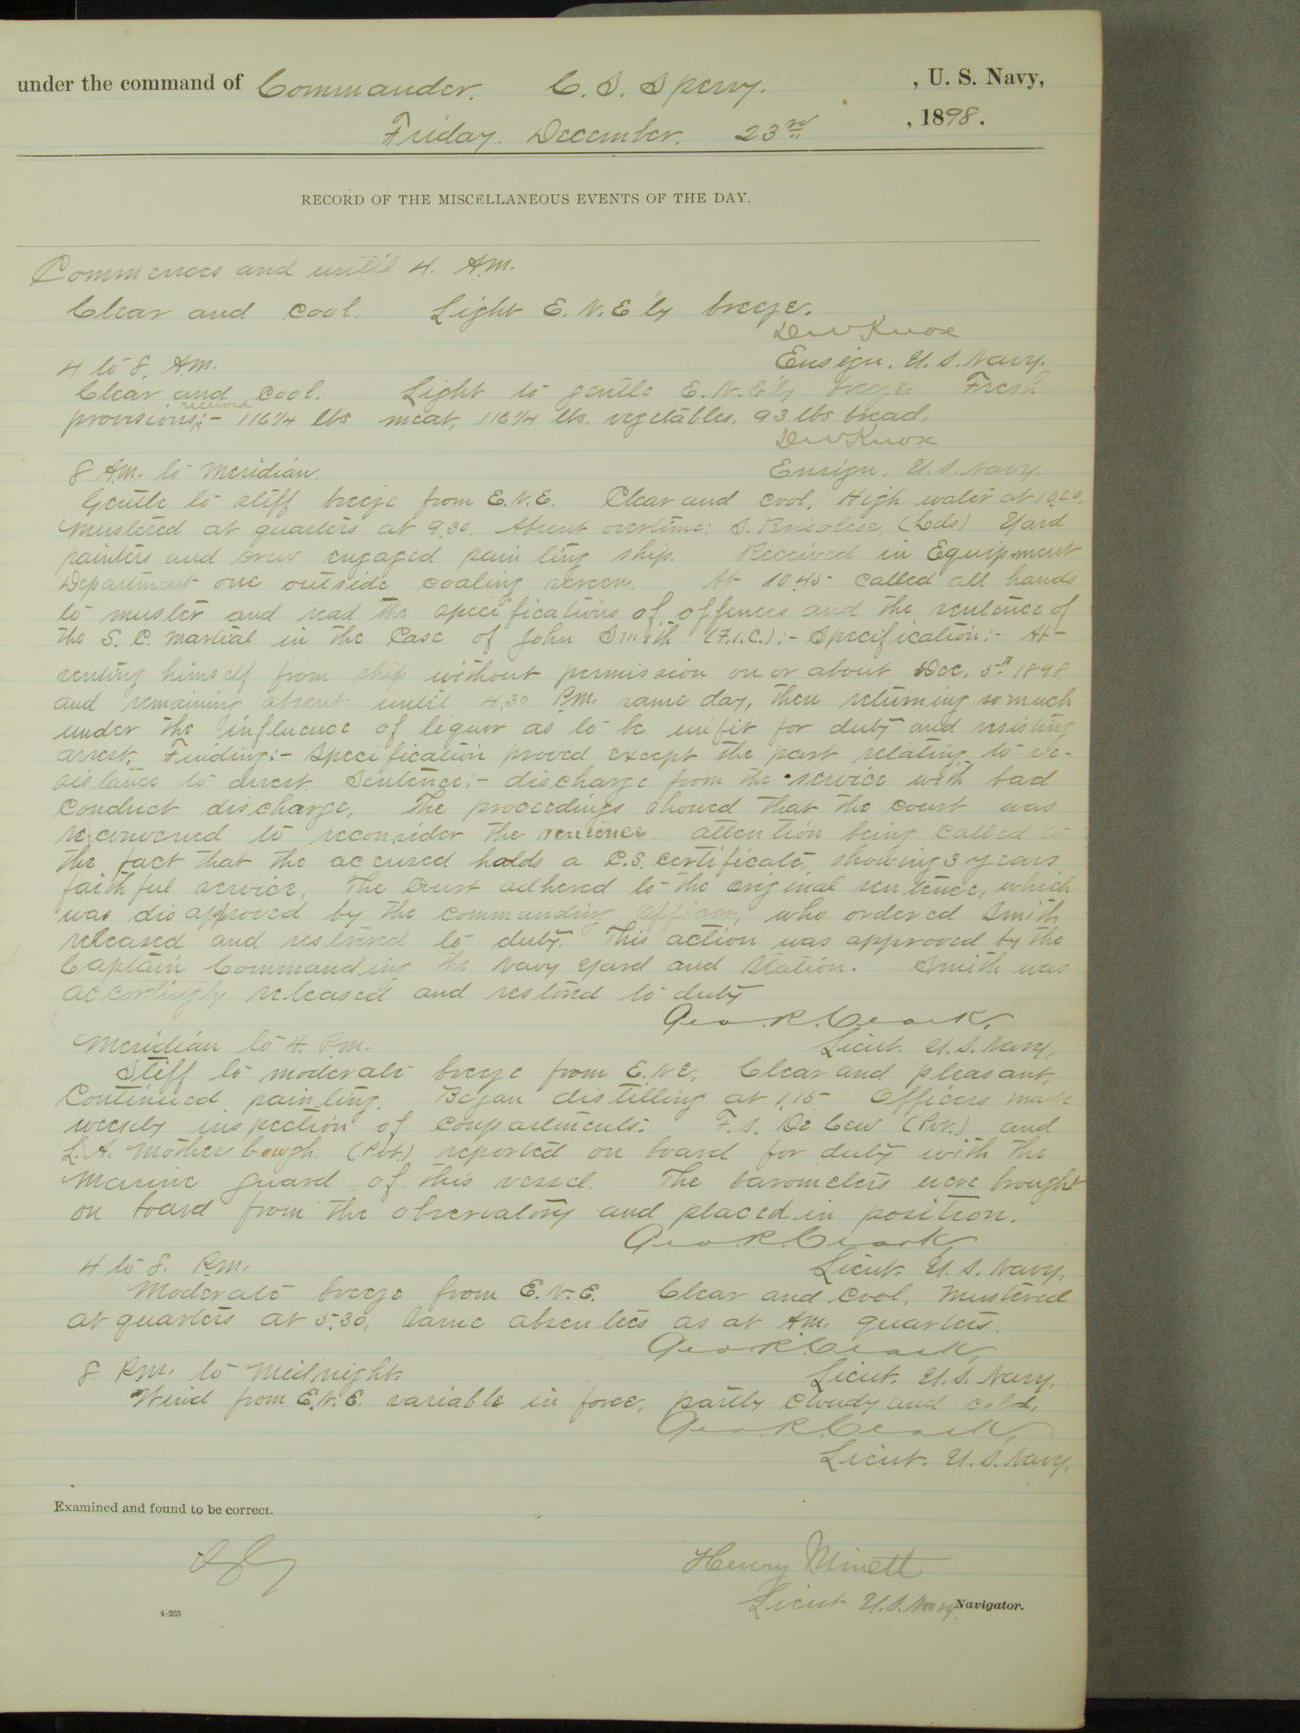 under the command of Commander. C. S. Sperry. , U. S. Navy,
Friday. December. 23rd , 1898.
RECORD OF THE MISCELLANEOUS EVENTS OF THE DAY.
Commences and until 4. A.M.
Clear and cool. Light E. N. E'ly breeze.
DWKnox
4 to 8. A.M. Ensign. U. S. Navy.
Clear and cool. Light to gentle E.N.E'ly breeze Fresh
provisions received:- 116 1/4 lbs meat, 116 1/4 lbs. vegetables. 93 lbs bread.
DWKnox
8 A.M. to Meridian. Ensign. U.S. Navy
Gentle to stiff breeze from E.N.E. Clear and cool. High water at
Mustered at quarters at 9.30. Absent overtime: S. (Lds) Yard
painters and crew engaged painting ship. Received in Equipment
Department one outside coaling screen. At 10.45 called all hands
to muster and read the specifications of offences and the sentence of
the S. C. Martial in the case of John Smith (F.1.C.):- Specification:- Ab-
senting himself from ship without permission on or about Dec. 5th 1898
and remaining absent until 4.30 P.M. same day, then returning so much
under the influence of liquor as to be unfit for duty and resisting
arrest. Finding:- Specification proved except the part relating to re-
sistance to arrest. Sentence:- discharge from the service with bad
conduct discharge. The proceedings showed that the court was
reconvened to reconsider the sentence attention being called to
the fact that the accused holds a C.S. certificate, showing 3 years
faithful service. The Court adhered to the original sentence, which
was disapproved by the commanding officer, who ordered Smith
released and restored to duty. This action was approved by the
Captain Commanding the Navy Yard and Station. Smith was
accordingly released and restored to duty
Geo. R. Clark.
Meridian to 4. P.M. Lieut. U.S. Navy,
Stiff to moderate breeze from E.N.E. Clear and pleasant.
Continued painting. Began distilling at 1.15 Officers made
weekly inspection of compartments. F. S. De Lew (Pvt.) and
L. A. Mothersbough. (Pvt.) reported on board for duty with the
Marine guard of this vessel. The barometers were brought
on board from the observatory and placed in position.
Geo. R. Clark
4 to 8. P.M. Lieut. U. S. Navy.
Moderate breeze from E.N.E. Clear and cool. Mustered
at quarters at 5.30, same absentees as at A.M. quarters.
Geo. R. Clark,
8. P.M. to Midnight. Lieut. U.S. Navy.
Wind from E.N.E. variable in force, partly cloudy and cold.
Geo. R. Clark
Lieut. U.S. Navy.
Examined and found to be correct.
Henry Minett
Lieut U.S. Navy Navigator.
4-265